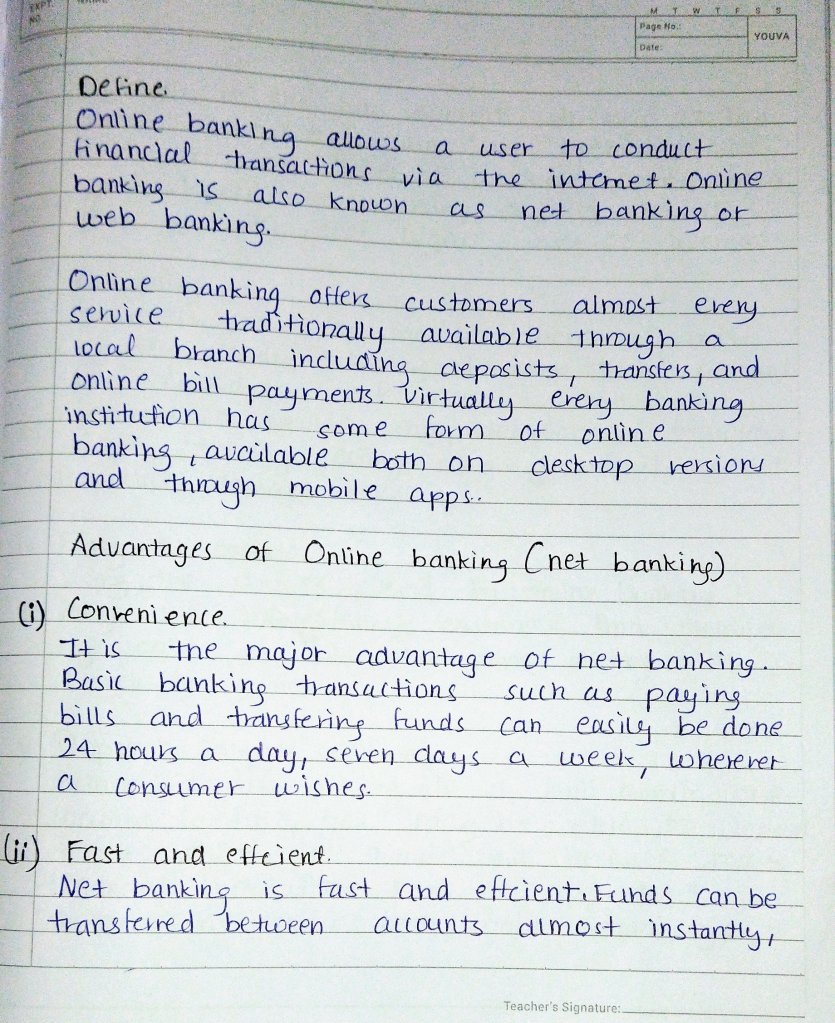 EXPT.
NO.
M T W T F S S
Page No.:
YOUVA
Date:
Define.
Online banking allows a user to conduct
financial transactions via the internet. Online
banking is also known as net banking or
web banking.
Online banking offers customers almost every
service traditionally available through a
local branch including deposists, transfers, and
online bill payments. Virtually every banking
institution has some form of online
banking, available both on desktop versions
and through mobile apps.
Advantages of Online banking (net banking)
(i) Convenience.
It is the major advantage of net banking.
Basic banking transactions such as paying
bills and transfering funds can easily be done
24 hours a day, seven days a week, wherever
a consumer wishes.
(ii) Fast and effcient.
Net banking is fast and effcient. Funds can be
transferred between accounts almost instantly,
Teacher's Signature: